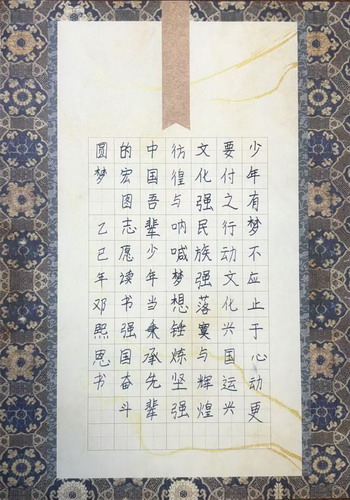 少年有梦不应止于心动更
要付之行动文化兴国运兴
文化强民族强落寞与辉煌
彷徨与呐喊梦想锤炼坚强
中国吾辈少年当秉承先辈
的宏图志愿读书强国奋斗
圆梦 乙巳年邓熙恩书